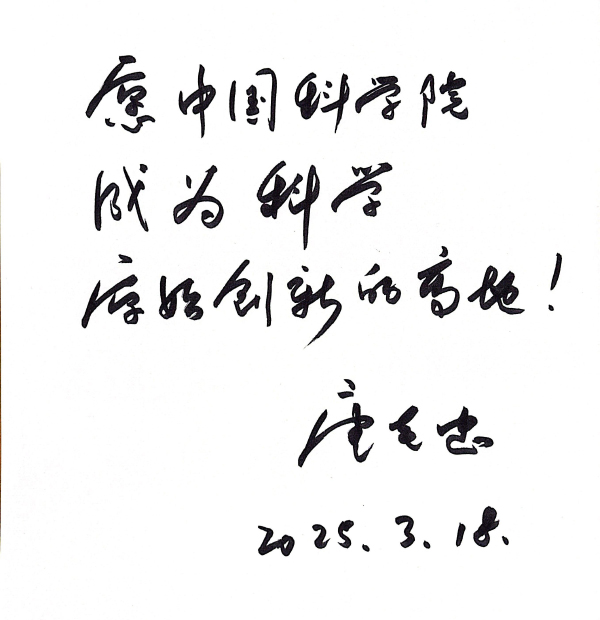 愿中国科学院
成为科学
原始创新的高地!
2025.3.18.